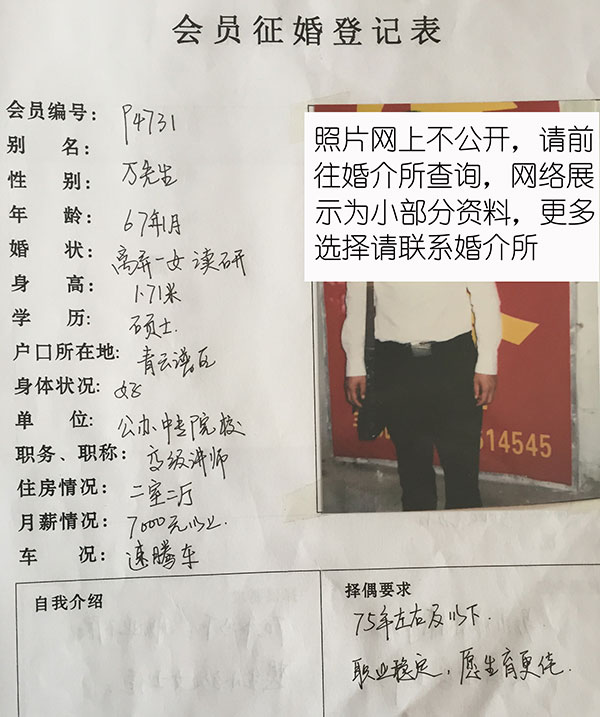 会员征婚登记表
会员编号: P4731
别 名: 万先生
性 别:
年 龄: 67年1月
婚 状: 离异一女 读研
身 高: 1.71米
学 历: 硕士
户口所在地: 青云谱区
身体状况: 好
单 位: 公办中专院校
职务、职称: 高级讲师
住房情况: 二室二厅
月薪情况: 7000元以上
车 况: 速腾车
照片网上不公开，请前
往婚介所查询，网络展
示为小部分资料，更多
选择请联系婚介所
514545
自我介绍
择偶要求
75年左右及以下.
职业稳定，愿生育更佳.